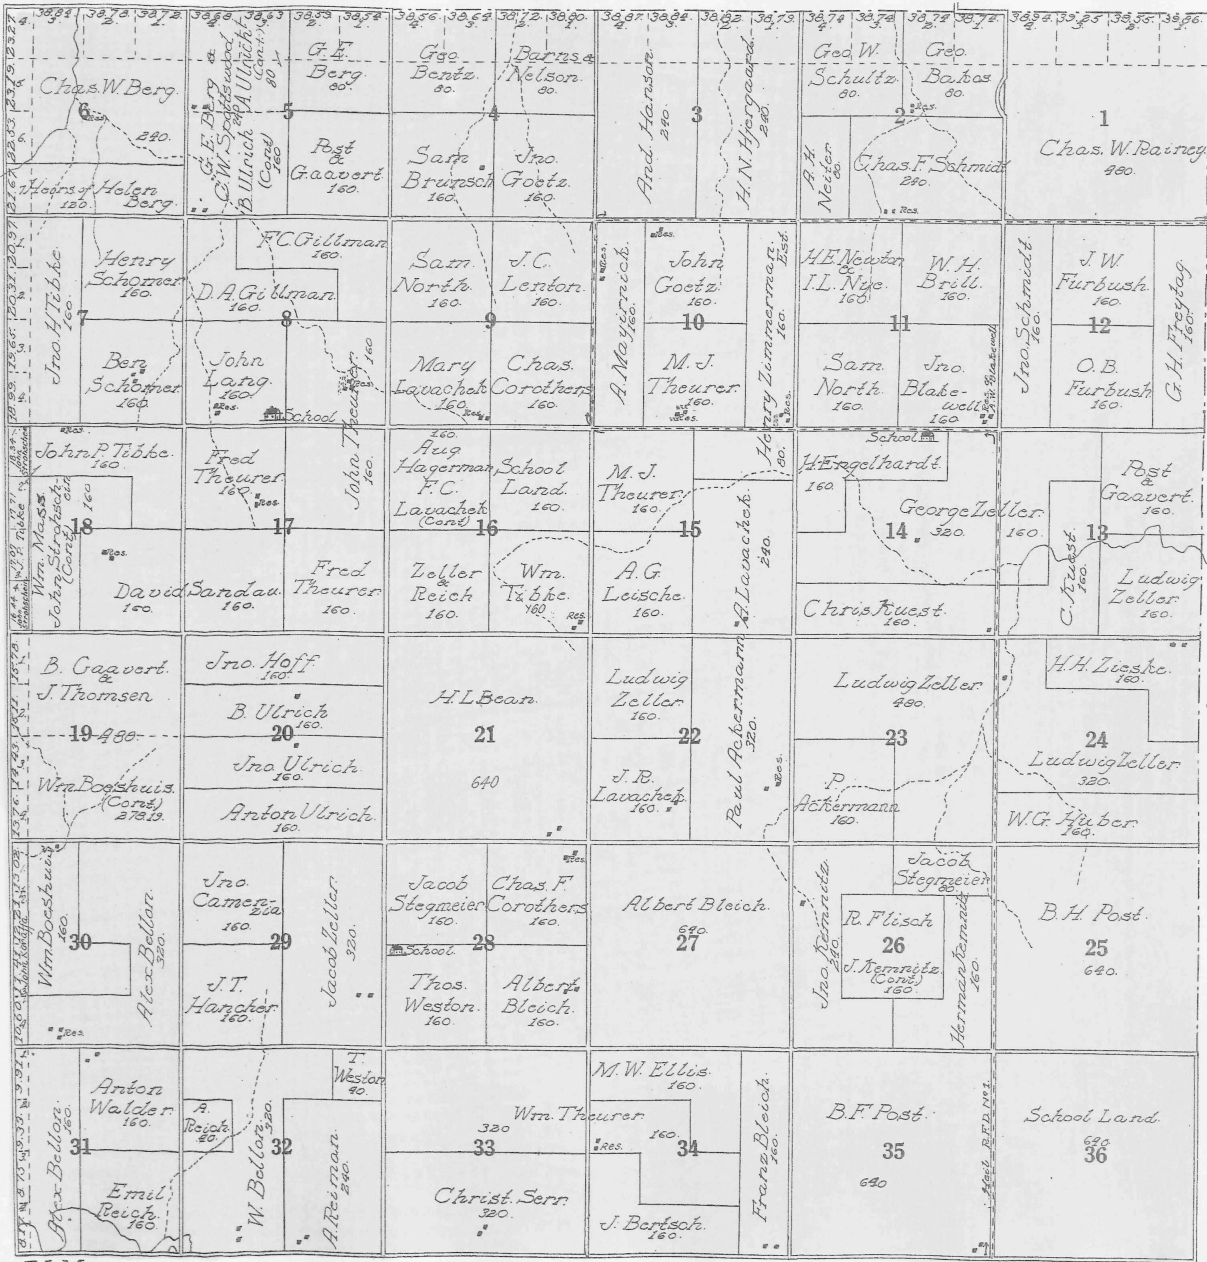 38.84 38.78 38.72
38.68 38.63 38.59 38.54
38.56 38.64 38.72 38.80
38.87 38.84 38.82 38.79
38.74 38.74 38.74 38.74
38.94 39.25 39.55 39.86
Chas. W. Berg.
6
Res.
240.
Heirs of Helen
Berg.
120.
G. E. Berg &
C. W. Spottswood
B. Ulrich
P. A. Ulrich
(Cont.)
80
(Cont)
160
G. E.
Berg
80.
5
Post
&
Gaavert.
160.
Geo
Bentz.
80.
Barns &
Nelson.
80.
4
Sam
Brunsch
160.
Jno.
Goetz.
160.
And. Hanson
240
3
H. N. Hjergaard
240.
Geo. W.
Schultz.
80.
Geo.
Bakos
80.
Res.
2
A. H.
Neiter
80.
Chas. F. Schmidt
240.
Res.
1
Chas. W. Rainey
480.
Jno. H. Tibke
160.
Henry
Schomer
160.
7
Ben
Schomer
160.
F. C. Gillman
160.
D. A. Gillman.
160.
8
John
Lang.
160.
Res.
School
John Theurer.
160
Res.
Sam.
North.
160.
J. C.
Lenton.
160.
9
Mary
Lavachek
160.
Res.
Chas.
Corothers
160.
A. Mayirnick.
160.
Res.
Res.
John
Goetz.
160.
10
M. J.
Theurer.
160.
Res.
Henry Zimmerman. Est.
160.
Res.
H. E. Newton
&
I. L. Nye.
160
W. H.
Brill.
160.
11
Sam.
North.
160.
Jno.
Blake-
well.
160
Res.
A. W. Blakewell
Jno. Schmidt.
160.
J. W.
Furbush.
160.
12
O. B.
Furbush.
160.
G. H. Freytag.
160.
Res.
John P. Tibke.
160.
Wm. Mass.
John Strohsch-
ein
(Cont.)
160
18
Res.
David Sandau.
160.
160.
Fred
Theurer.
160.
Res.
160.
17
Fred
Theurer
160.
160.
Aug
Hagerman
F. C.
Lavachek
(Cont)
School
Land.
160.
16
Zeller
&
Reich
160.
Wm.
Tibke.
160
Res.
M. J.
Theurer.
160.
80.
15
A. G.
Leische.
160.
A. Lavachek.
240.
School
H. Engelhardt.
160.
George Zeller.
320.
160.
14
Chris Kuest.
160.
Post
&
Gaavert.
160.
13
C. Kuest.
160.
Ludwig
Zeller
160.
B. Gaavert.
&
J. Thomsen
19
480.
Wm. Boeshuis.
(Cont)
278.19.
Jno. Hoff
160.
B. Ulrich
160.
20
Jno. Ulrich.
160.
Anton Ulrich.
160.
H. L. Bean.
21
640
Ludwig
Zeller.
160.
22
J. R.
Lavachek.
160.
Paul Ackermann
320.
Res.
Ludwig Zeller
480.
23
P.
Ackermann
160.
H. H. Zieske.
160.
24
Ludwig Zeller
320.
W. G. Huber.
160.
Wm. Boeshuis.
160.
30
Alex Bellon.
320.
Res.
Jno.
Camen-
zia
160.
29
J. T.
Hancher.
160.
Jacob Zeller.
320.
Jacob
Stegmeier
160.
Res.
Chas. F.
Corothers
160.
School.
28
Thos.
Weston.
160.
Albert
Bleich.
160.
Albert Bleich.
640.
27
Jno. Kemnitz.
240.
Jacob
Stegmeier
80.
R. Flisch
26
J. Kemnitz.
(Cont)
160.
Herman Kemnitz.
160.
B. H. Post.
25
640.
Alex Bellon.
160.
Anton
Walder.
160.
31
Emil
Reich.
160.
A.
Reich.
40.
W. Bellon.
320.
32
T.
Weston
40.
A. Reiman
240.
320
33
Christ. Serr.
320.
M. W. Ellis.
160.
Wm. Theurer
160.
Res.
34
J. Bertsch.
160.
Franz Bleich.
160.
B. F. Post.
35
640
Mail R.F.D. No 1.
School Land.
640
36